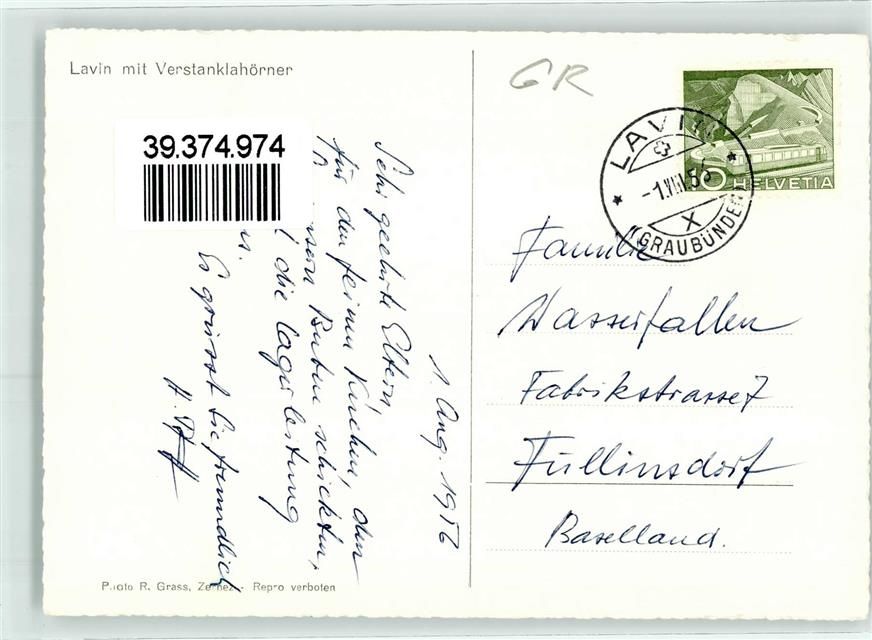 Lavin mit Verstanklahörner
39.374.974
GR
LAVIN
-1.VIII.56
X
(GRAUBÜNDEN)
10 HELVETIA
1. Aug. 1956
Sehr geehrte Eltern,
für den feinen Kuchen, den
Buben schickten,
die Lagerleitung
Es grüsst Sie freundlich
H.
Familie
Wasserfallen
Fabrikstrasse 7
Füllinsdorf
Baselland.
Photo R. Grass, Zernez - Repro verboten